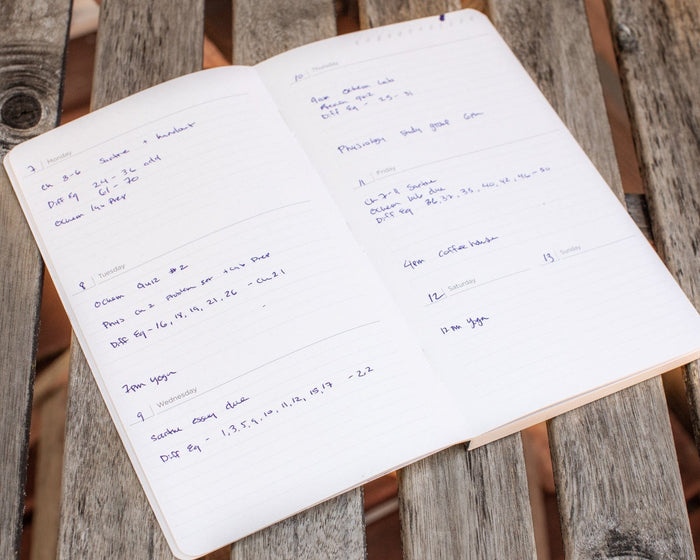 7 Monday
Ch 8-6 Sartre + handout
Diff Eq 24 - 36 odd
61 - 70
Ochem Lab Prep
8 Tuesday
Ochem Quiz #2
Phys Ch 2 Problem set + Lab Prep
Diff Eq - 16, 18, 19, 21, 26 - Ch 21
7pm yoga
9 Wednesday
Sartre essay due
Diff Eq - 1, 3, 5, 9, 10, 11, 12, 15, 17 - 2.2
10 Thursday
9am Ochem Lab
quiz
Diff Eq - 25 - 31
Physiology study group 6pm
11 Friday
Ch 7-8 Sartre
Ochem lab due
Diff Eq 36, 37, 38, 40, 42, 46 - 50
4pm Coffee house
12 Saturday
12 pm yoga
13 Sunday